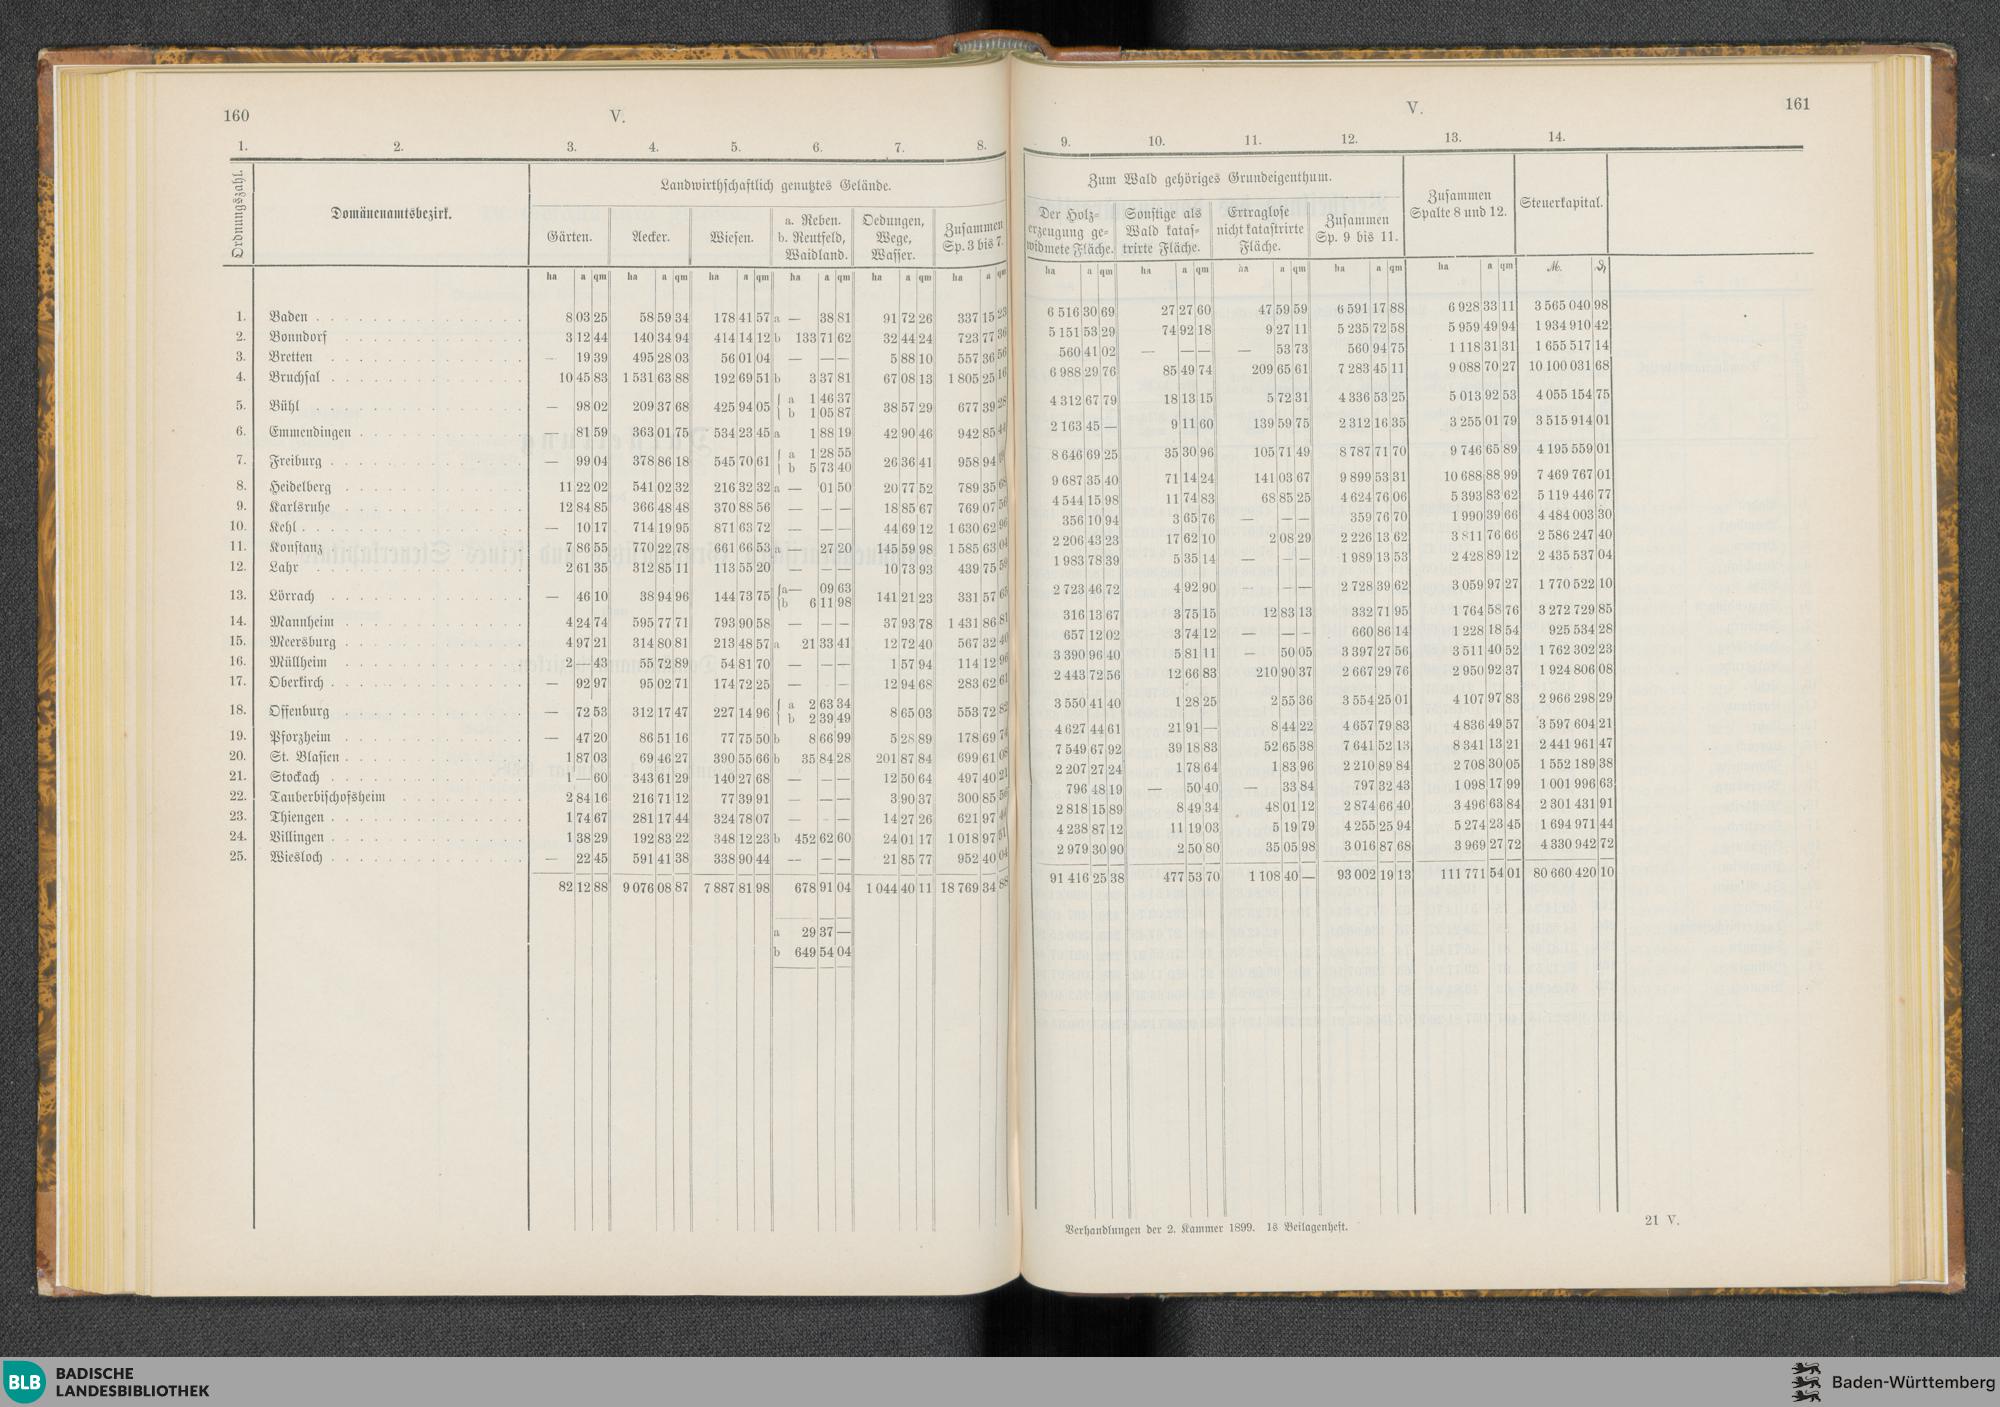 160
V.
1. 2. 3. 4. 5. 6. 7. 8.
Ordnungszahl.
Domänenamtsbezirk.
Landwirthschaftlich genutztes Gelände.
Gärten. Aecker. Wiesen. a. Reben. b. Reutfeld, Waidland. Oedungen, Wege, Wasser. Zusammen Sp. 3 bis 7.
ha a qm ha a qm ha a qm ha a qm ha a qm ha a qm
1. Baden 8 03 25 58 59 34 178 41 57 a — 38 81 91 72 26 337 15 23
2. Bonndorf 3 12 44 140 34 94 414 14 12 b 133 71 62 32 44 24 723 77 36
3. Bretten — 19 39 495 28 03 56 01 04 — — — 5 88 10 557 36 56
4. Bruchsal 10 45 83 1 531 63 88 192 69 51 b 3 37 81 67 08 13 1 805 25 16
5. Bühl — 98 02 209 37 68 425 94 05 { a 1 46 37 b 1 05 87 38 57 29 677 39 28
6. Emmendingen — 81 59 363 01 75 534 23 45 a 1 88 19 42 90 46 942 85 44
7. Freiburg — 99 04 378 86 18 545 70 61 { a 1 28 55 b 5 73 40 26 36 41 958 94
8. Heidelberg 11 22 02 541 02 32 216 32 32 a — 01 50 20 77 52 789 35 68
9. Karlsruhe 12 84 85 366 48 48 370 88 56 — — — 18 85 67 769 07 56
10. Kehl — 10 17 714 19 95 871 63 72 — — — 44 69 12 1 630 62 96
11. Konstanz 7 86 55 770 22 78 661 66 53 a — 27 20 145 59 98 1 585 63 04
12. Lahr 2 61 35 312 85 11 113 55 20 — — — 10 73 93 439 75 59
13. Lörrach — 46 10 38 94 96 144 73 75 { a — 09 63 b 6 11 98 141 21 23 331 57 65
14. Mannheim 4 24 74 595 77 71 793 90 58 — — — 37 93 78 1 431 86 81
15. Meersburg 4 97 21 314 80 81 213 48 57 a 21 33 41 12 72 40 567 32 40
16. Müllheim 2 — 43 55 72 89 54 81 70 — — — 1 57 94 114 12 96
17. Oberkirch — 92 97 95 02 71 174 72 25 — — — 12 94 68 283 62 61
18. Offenburg — 72 53 312 17 47 227 14 96 { a 2 63 34 b 2 39 49 8 65 03 553 72 82
19. Pforzheim — 47 20 86 51 16 77 75 50 b 8 66 99 5 28 89 178 69 74
20. St. Blasien 1 87 03 69 46 27 390 55 66 b 35 84 28 201 87 84 699 61 08
21. Stockach 1 — 60 343 61 29 140 27 68 — — — 12 50 64 497 40 21
22. Tauberbischofsheim 2 84 16 216 71 12 77 39 91 — — — 3 90 37 300 85 56
23. Thiengen 1 74 67 281 17 44 324 78 07 — — — 14 27 26 621 97 44
24. Villingen 1 38 29 192 83 22 348 12 23 b 452 62 60 24 01 17 1 018 97 51
25. Wiesloch — 22 45 591 41 38 338 90 44 — — — 21 85 77 952 40 04
82 12 88 9 076 08 87 7 887 81 98 678 91 04 1 044 40 11 18 769 34 88
a 29 37 —
b 649 54 04
161
V.
9. 10. 11. 12. 13. 14.
Zum Wald gehöriges Grundeigenthum.
Der Holzerzeugung gewidmete Fläche. Sonstige als Wald katastrirte Fläche. Ertraglose nicht katastrirte Fläche. Zusammen Sp. 9 bis 11. Zusammen Spalte 8 und 12. Steuerkapital.
ha a qm ha a qm ha a qm ha a qm ha a qm M. ₰
6 516 30 69 27 27 60 47 59 59 6 591 17 88 6 928 33 11 3 565 040 98
5 151 53 29 74 92 18 9 27 11 5 235 72 58 5 959 49 94 1 934 910 42
560 41 02 — — — — 53 73 560 94 75 1 118 31 31 1 655 517 14
6 988 29 76 85 49 74 209 65 61 7 283 45 11 9 088 70 27 10 100 031 68
4 312 67 79 18 13 15 5 72 31 4 336 53 25 5 013 92 53 4 055 154 75
2 163 45 — 9 11 60 139 59 75 2 312 16 35 3 255 01 79 3 515 914 01
8 646 69 25 35 30 96 105 71 49 8 787 71 70 9 746 65 89 4 195 559 01
9 687 35 40 71 14 24 141 03 67 9 899 53 31 10 688 88 99 7 469 767 01
4 544 15 98 11 74 83 68 85 25 4 624 76 06 5 393 83 62 5 119 446 77
356 10 94 3 65 76 — — — 359 76 70 1 990 39 66 4 484 003 30
2 206 43 23 17 62 10 2 08 29 2 226 13 62 3 811 76 66 2 586 247 40
1 983 78 39 5 35 14 — — — 1 989 13 53 2 428 89 12 2 435 537 04
2 723 46 72 4 92 90 — — — 2 728 39 62 3 059 97 27 1 770 522 10
316 13 67 3 75 15 12 83 13 332 71 95 1 764 58 76 3 272 729 85
657 12 02 3 74 12 — — — 660 86 14 1 228 18 54 925 534 28
3 390 96 40 5 81 11 — 50 05 3 397 27 56 3 511 40 52 1 762 302 23
2 443 72 56 12 66 83 210 90 37 2 667 29 76 2 950 92 37 1 924 806 08
3 550 41 40 1 28 25 2 55 36 3 554 25 01 4 107 97 83 2 966 298 29
4 627 44 61 21 91 — 8 44 22 4 657 79 83 4 836 49 57 3 597 604 21
7 549 67 92 39 18 83 52 65 38 7 641 52 13 8 341 13 21 2 441 961 47
2 207 27 24 1 78 64 1 83 96 2 210 89 84 2 708 30 05 1 552 189 38
796 48 19 — 50 40 — 33 84 797 32 43 1 098 17 99 1 001 996 63
2 818 15 89 8 49 34 48 01 12 2 874 66 40 3 496 63 84 2 301 431 91
4 238 87 12 11 19 03 5 19 79 4 255 25 94 5 274 23 45 1 694 971 44
2 979 30 90 2 50 80 35 05 98 3 016 87 68 3 969 27 72 4 330 942 72
91 416 25 38 477 53 70 1 108 40 — 93 002 19 13 111 771 54 01 80 660 420 10
Verhandlungen der 2. Kammer 1899. 1s Beilagenheft.
21 V.
BLB BADISCHE
LANDESBIBLIOTHEK
Baden-Württemberg